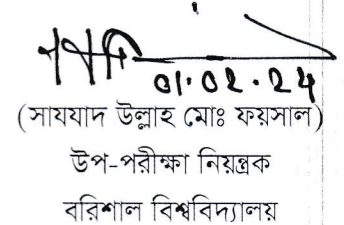 01.02.24
(সাযযাদ উল্লাহ মোঃ ফয়সাল)
উপ-পরীক্ষা নিয়ন্ত্রক
বরিশাল বিশ্ববিদ্যালয়